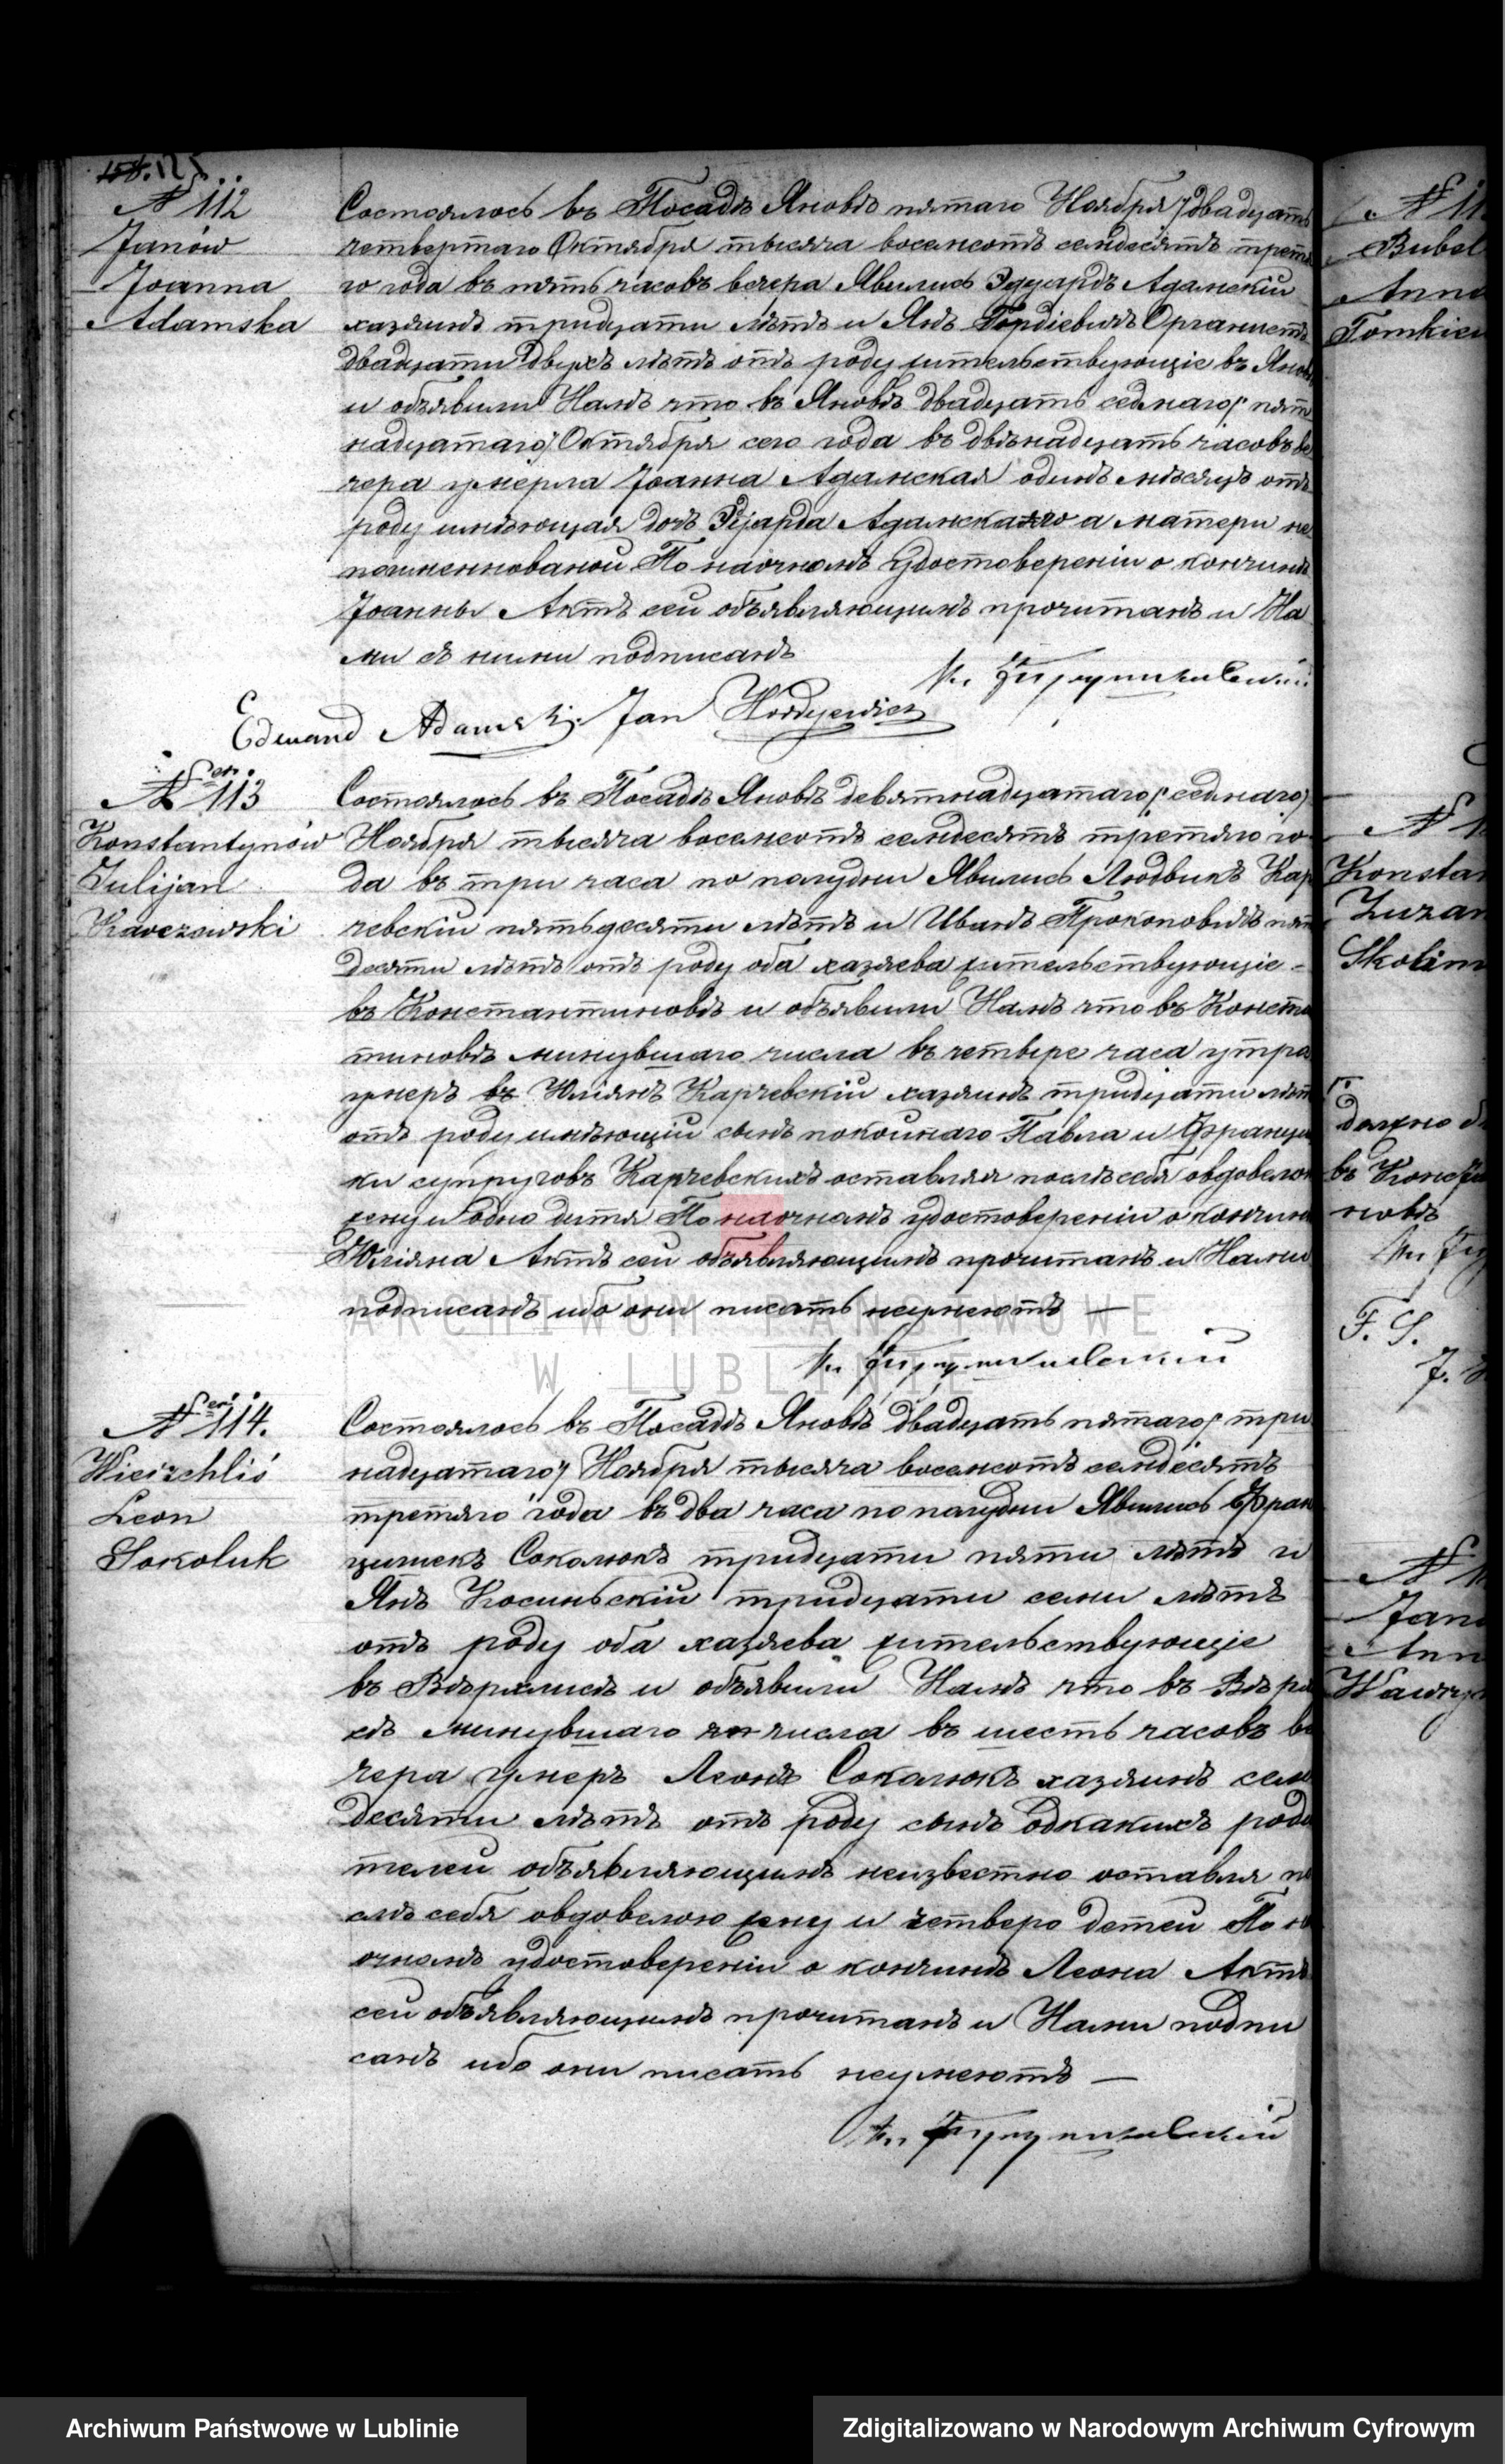 № 112
Janów
Joanna
Adamska
Состоялось въ Посадѣ Яновѣ пятаго Ноября /двадцать
четвертаго Октября тысяча восемсотъ семдесятъ треть
го года въ пять часовъ вечера Явились Эдуардъ Адамскiи
хазяинъ тридцати лѣтъ и Янъ Гордiевичъ Органистъ
двадцати двухъ лѣтъ отъ роду жительствующiе въ Янов
и объявили Намъ что въ Яновѣ двадцать седмаго / пят
надцатаго/ Октября сего года въ двѣнадцать часовъ ве
чера умерла Iоанна Адамская одинъ мѣсяцъ отъ
роду имѣющая дочь Адамскаго а матери не
поименнованой По наочномъ удостоверенiи о кончинѣ
Iоанны Актъ сеи объявляющимъ прочитанъ и На
ми съ ними подписанъ
Edward Adamski. Jan Hordyjewicz
№ 113
Konstantynów
Julijan
Karczewski
Состоялось въ Посадѣ Яновѣ девятнадцатаго /седмаго/
Ноября тысяча восемсотъ семдесятъ третяго го
да въ три часа по полудни Явились Людвикъ Кар
чевскiи пятьдесяти лѣтъ и Иванъ Прокоповичъ пят
десяти лѣтъ отъ роду оба хазяева жительствующiе -
въ Константиновѣ и объявили Намъ что въ Конста
тиновѣ минувшаго числа въ четвере часа утра
умеръ въ Юлiянъ Карчевскiи хазяинъ тридцати лѣт
отъ роду имѣющiи сынъ покоинаго Павла и Францыш
ки супруговъ Карчевскихъ оставляя послѣ себя овдовелою
жену и одно дитя По наочномъ удостоверенiи о кончинѣ
Юлiяна Актъ сеи объявляющимъ прочитанъ и Нами
подписанъ ибо они писать неумеютъ —
№ 114.
Wieirzchliś
Leon
Sokoluk
Состоялось въ Посадѣ Яновѣ двадцать пятаго / три
надцатаго/ Ноября тысяча восемсотъ семдесятъ
третяго года въ два часа по полудни Явились Фран
цишекъ Соколюкъ тридцати пяти лѣтъ и
Янъ Косиньскiи тридцати семи лѣтъ
отъ роду оба хазяева жительствующiе
въ Вѣрхлисѣ и объявили Намъ что въ Вѣрхли
сѣ минувшаго числа въ шесть часовъ ве
чера умеръ Леонъ Соколюкъ хазяинъ сем
десяти лѣтъ отъ роду сынъ однакихъ роди
телеи объявляющимъ неизвестно оставля по
слѣ себя овдовелою жену и четверо детеи По на
очномъ удостоверенiи о кончинѣ Леона Актъ
сеи объявляющимъ прочитанъ и Нами подпи
санъ ибо они писать неумеютъ —
№ 11
Bubel
Anna
Tomkiew
№ 1
Konstan
Zuzan
Skolim
должно б
въ Конста
новѣ
F. S.
№ 1
Jan
Ann
Wawrzy
ARCHIWUM PAŃSTWOWE
W LUBLINIE
Archiwum Państwowe w Lublinie
Zdigitalizowano w Narodowym Archiwum Cyfrowym